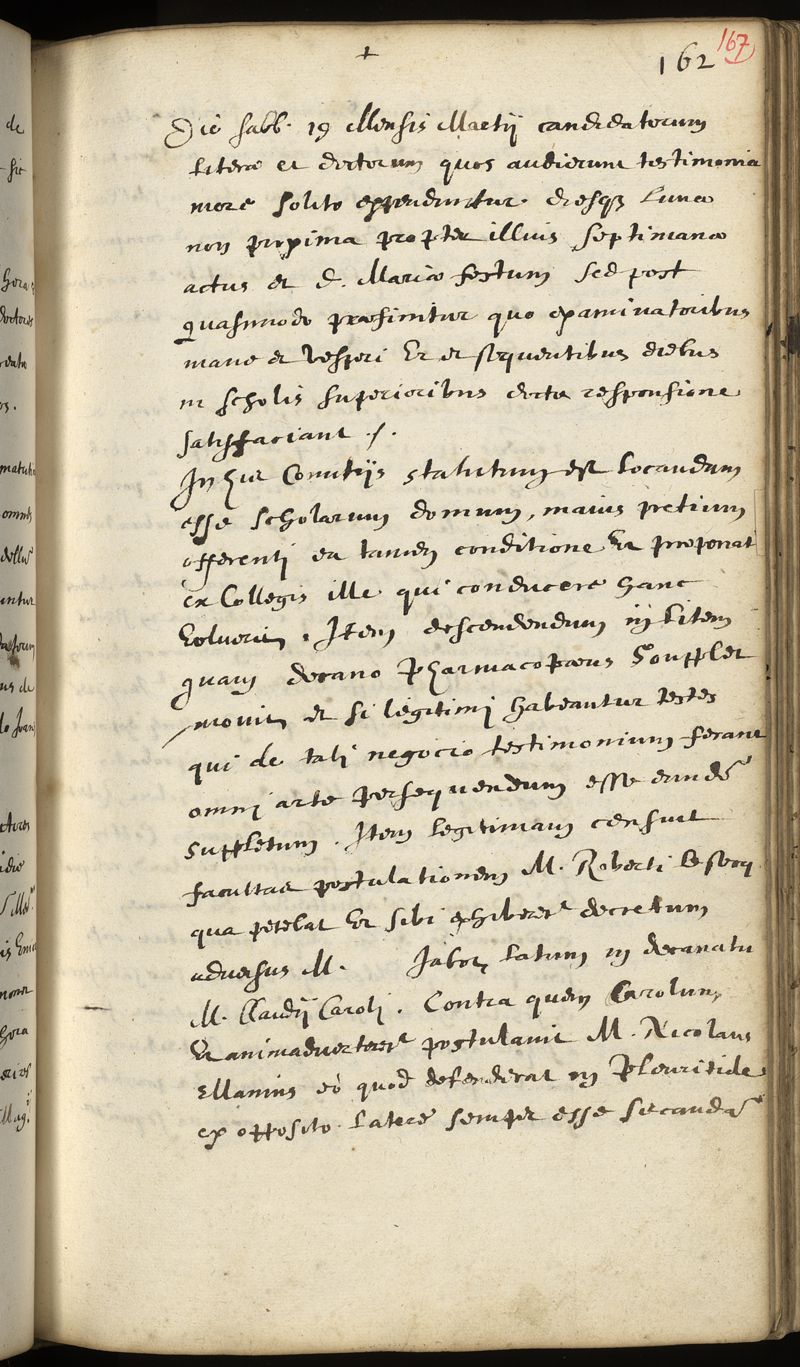 162
167
Die sabb. 19 Mensis Martij candidatorum
literæ et doctorum quos audierunt testimonia
more solito expenduntur. diesq3 lunæ
non proxima propter illius septimanæ
actus et D. Mariæ festum sed post
quasimodo præfinitur quo examinatoribus
mane et vesperi Et et sequentibus diebus
in scholis superioribus docta responsione
satisfaciant /.
In his Comitijs statutum est locandam
esse scholarum domum, maius pretium
offerenti ea tamen conditione Ut proponat
ex Collegis ille qui conducere hanc
voluerit. Item descendendum in litem
quam decano Pharmacopæus Soupplet
movit et si legitimi habeantur testes
qui de tali negocio testimonium ferant
omni arte persequendum esse eundē
suppletum. Item legitimam censuit
facultas postulationem M. Roberti le secq
qua petebat Ut sibi exhiberetr decretum
adversus M. Jabot latum in decanatu
M. Claudij Caroli. Contra quem Carolum,
Ut animadverteretr postulavit M. Nicolaus
Ellanius eò quod defenderat in Pleuritide
ex opposito latere semper esse secandā